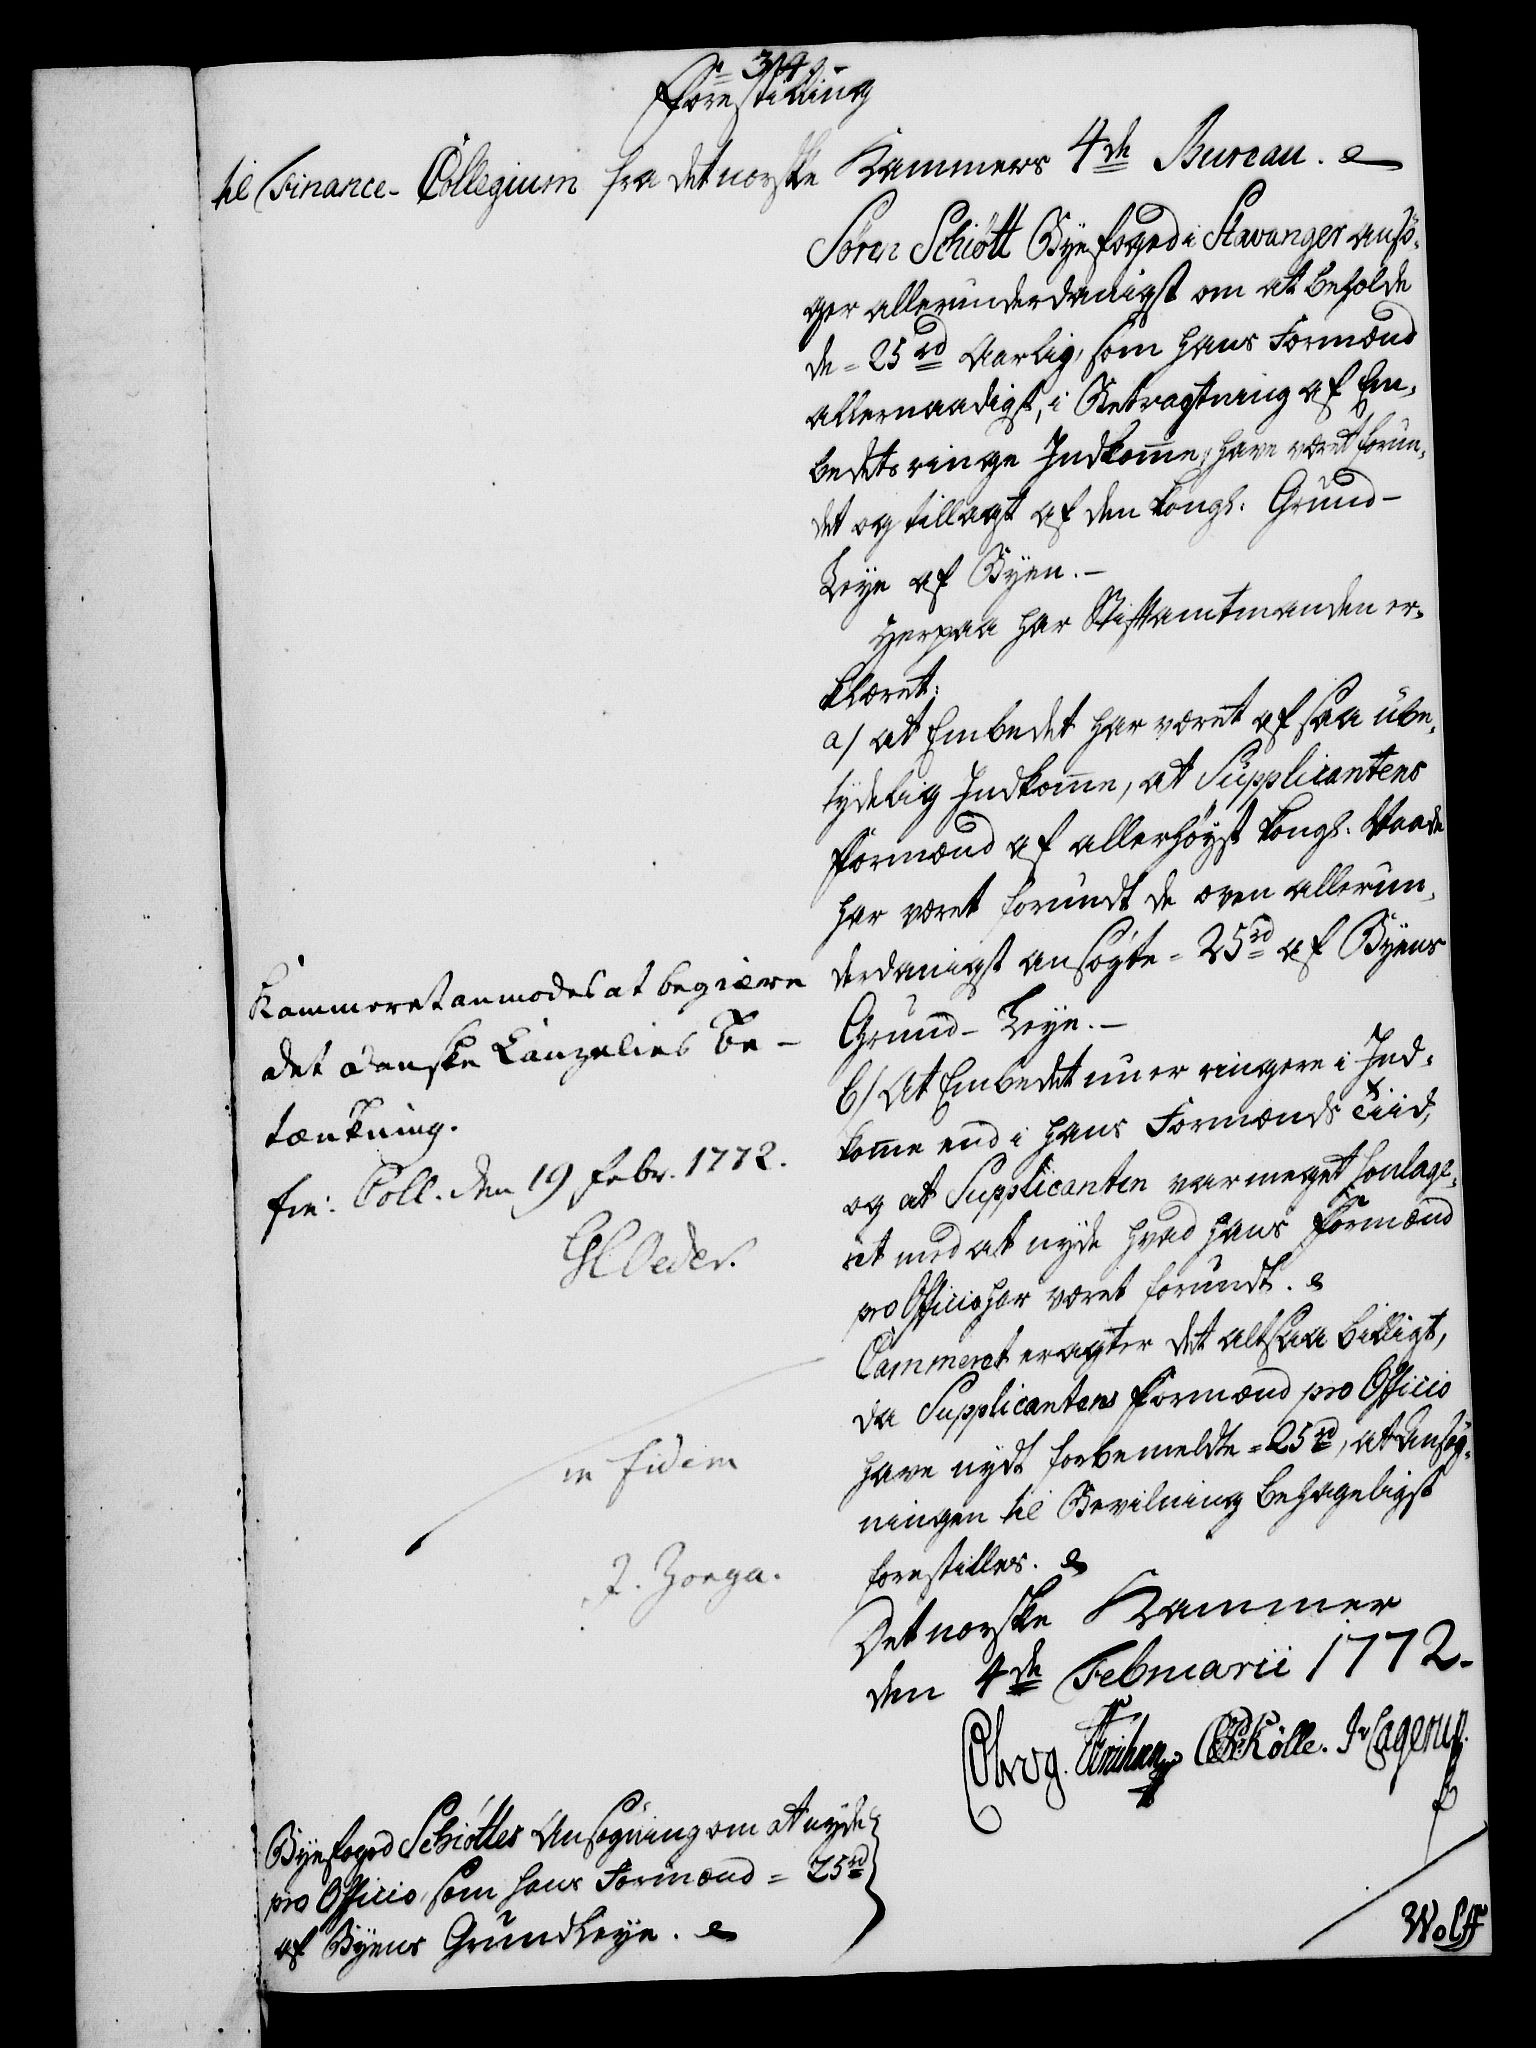 314.
Forestilling
til Finance-Collegium fra det norske Kammers 4de Bureau.
Sören Schiött Byefoged i Stavanger ansö-
ger allerunderdanigst om at beholde
de = 25 rd Aarlig, som hans Formænd
allernaadigst, i Betragtning af Em-
bedets ringe Indkomme, have været forun-
det og tillagt af den kongl. Grund-
Leye af Byen.-
Herpaa har Stiftamtmanden er-
klæret;
a/ at Embedet har været af saa ube-
tydelig Indkomme, at Supplicantens
Formænd af allerhöyst kongl. Naade
har været forundt de oven allerun-
derdanigst ansögte = 25 rd af Byens
Grund-Leye.-
b/ At Embedet nu er ringere i Ind-
komme end i hans Formænds Tiid,
og at Supplicanten var meget
med at nyde hvad hans Formænd
pro Officio har været forundt.
Cammeret eragter det altsaa billigt,
da Supplicantens Formænd pro Officio
have nydt forbemeldte = 25 rd, at Ansög-
ningen til Bevilning behageligst
forestilles.
Det norske Kammer
den 4de Februarii 1772.
Wolff
Kammeret anmodes at begiære
det danske Canzelies Be-
tænkning.
fin: Coll. den 19 Febr. 1772.
GCOeder.
in fidem
J. Zoega.
Byefoged Schiöttes Ansögning om at nyde
pro Officio, som hans Formænd = 25 rd
af Byens Grundleye.